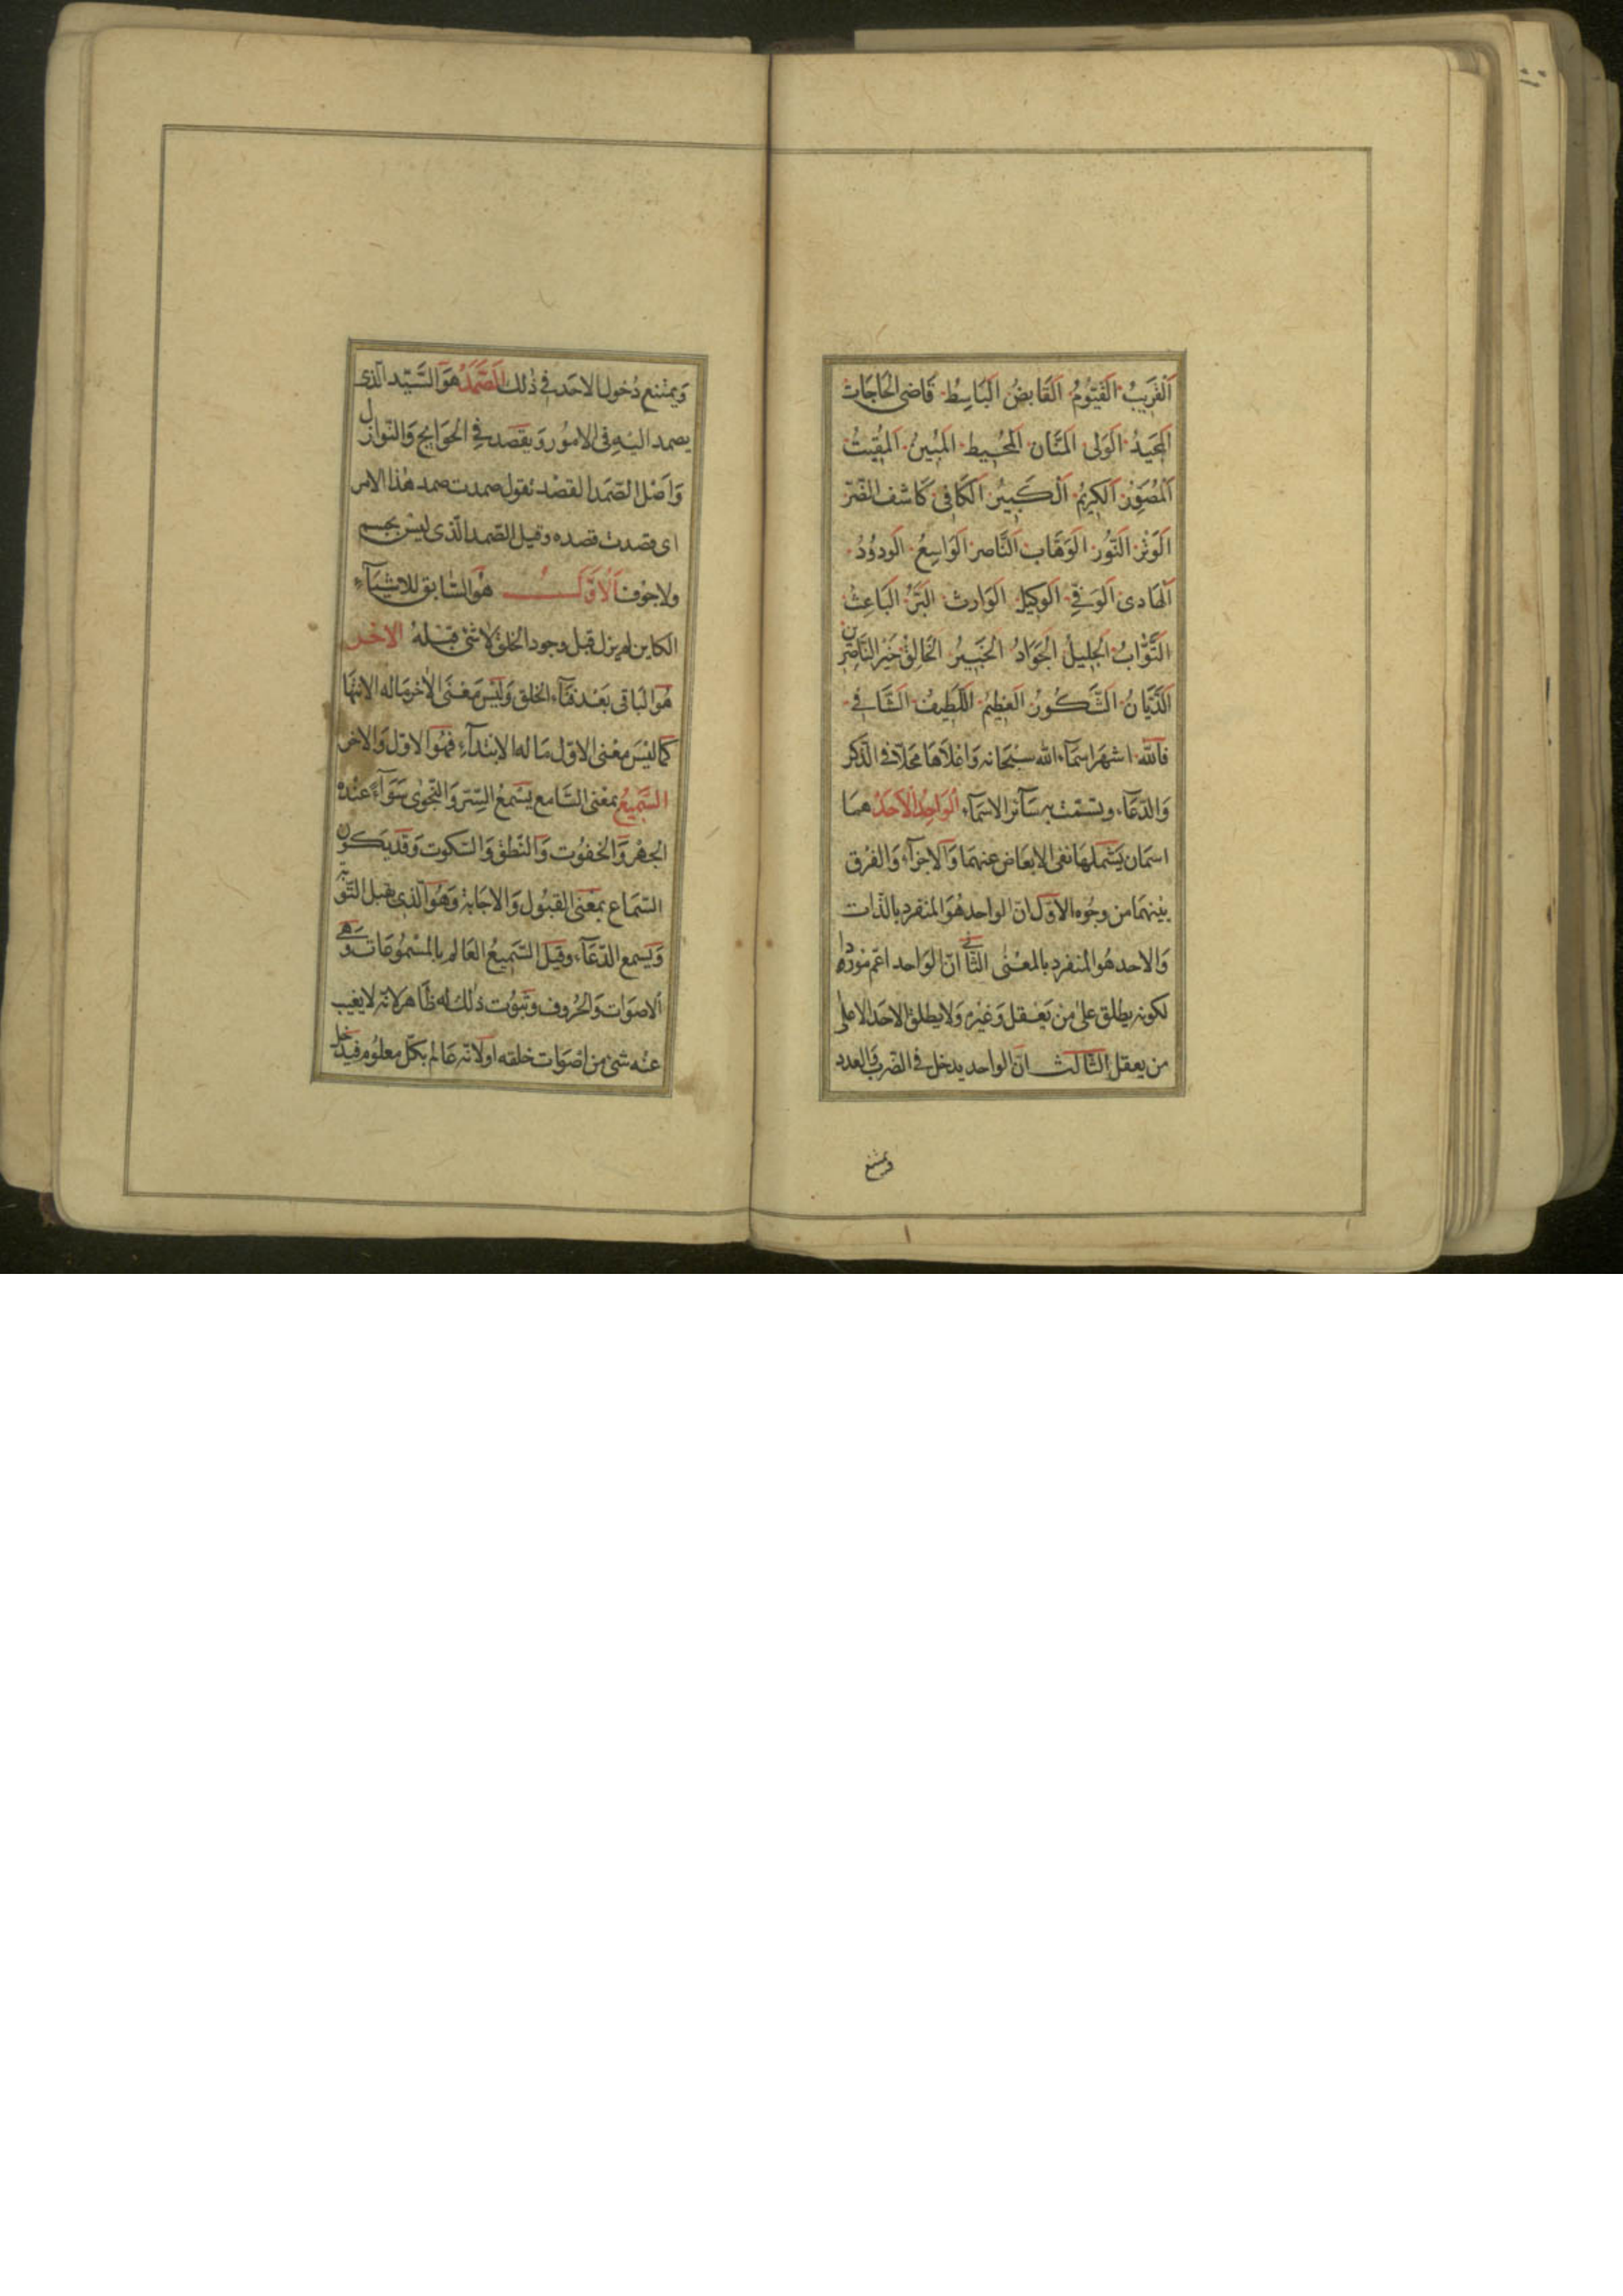 اَلْقَرِيبُ اَلْقَيُّومُ اَلْقَابِضُ اَلْبَاسِطُ قَاضِى الْحَاجَاتِ
اَلْمَجِيدُ اَلْوَلِى اَلْمَنَّان اَلْمُحِيط اَلْمُبِينُ اَلْمُقِيتُ
اَلْمُصَوِّرُ اَلْكَرِيمُ اَلْكَبِيرُ اَلْكَافِى كَاشف الضُّرّ
اَلْوَتْرُ اَلنُّور اَلْوَهَّاب اَلنَّاصر اَلْوَاسِعُ اَلْودُودُ
اَلْهَادِى اَلْوَفِىّ اَلْوَكِيل اَلْوَارِث اَلْبَرُّ اَلْبَاعِثُ
اَلتَّوَّابُ اَلْجَلِيلُ اَلْجَوَادُ اَلْخَبِيرُ اَلْخَالِقُ خَيْرُ النَّاصِرِين
اَلدَّيَّانُ اَلشَّكُورُ اَلْعَظِيمُ اَللَّطِيفُ اَلشَّافِى
فالله اشهر اسمآء الله سبحانه وَاعْلَاهَا محلّا فى الذّكر
وَالدّعَآء وتسمّت به سَآئر الاسمَآء اَلْوَاحِدُ اَلْاَحَدُ همَا
اسمَان يَشْمَلهَا نفى الابعَاض عنهمَا وَالاجزآء وَالفَرْق
بيْنهمَا من وجُوه الاوّل انّ الواحد هُوَ المنفرد بالذّات
وَالاحد هُو المنفرد بالمعْنى الثّانى انّ الوَاحد اعمّ موردًا
لكونه يطلق على منْ يَعْقل وَغيْره وَلا يطلق الاحَد الا على
من يعقل الثّالث انّ الواحد يدخل فى الضّرب وَالعدد
ويمتنع
وَيمتنع دُخول الاحَد فى ذٰلك اَلصَّمَدُ هُوَ السَّيّد الّذى
يصمد اليْهِ فى الامُور وَيقصَد فى الحَوَايج وَالنّوازل
وَاَصْل الصّمَد القصْد نقول صمدت صمد هٰذا الامر
اى قصدت قصده وقيل الصّمد الّذى ليْسَ بجسم
ولا جوْف اَلْاَوَّلُ هُوَ السّابق للاشيَآء
الكاين لم يزل قبل وجود الخلق لا شئ قبْلهُ الاخر
هُوَ البَاقى بَعْد فنَآء الخلق وَليْسَ مَعْنَى الاٰخر مَا له الانتهَا
كما ليْسَ معْنى الاوّل مَا له الابتدآء فهُوَ الاوّل وَالاٰخر
السَّمِيعُ بمَعْنى السَّامع يسْمعُ السّرّ وَالنّجْوٰى سَوَآءً عنْده
الجهْر وَالخفُوت وَالنّطق وَالسّكوت وَقَد يَكون
السّمَاع بمَعْنى القبُول وَالاجَابة وَهُوَ الّذى يقبل التّوْبة
وَيَسمع الدّعَآء وقيْل السَّميعُ العَالم بالمسْمُوعَات وَهى
الاصوَات وَالحُروف وثبوُت ذٰلك له ظَاهر لانّه لا يغيب
عنْه شئ من اصْوَات خلقه اولانّه عَالم بكلّ معلُوم فيدخل